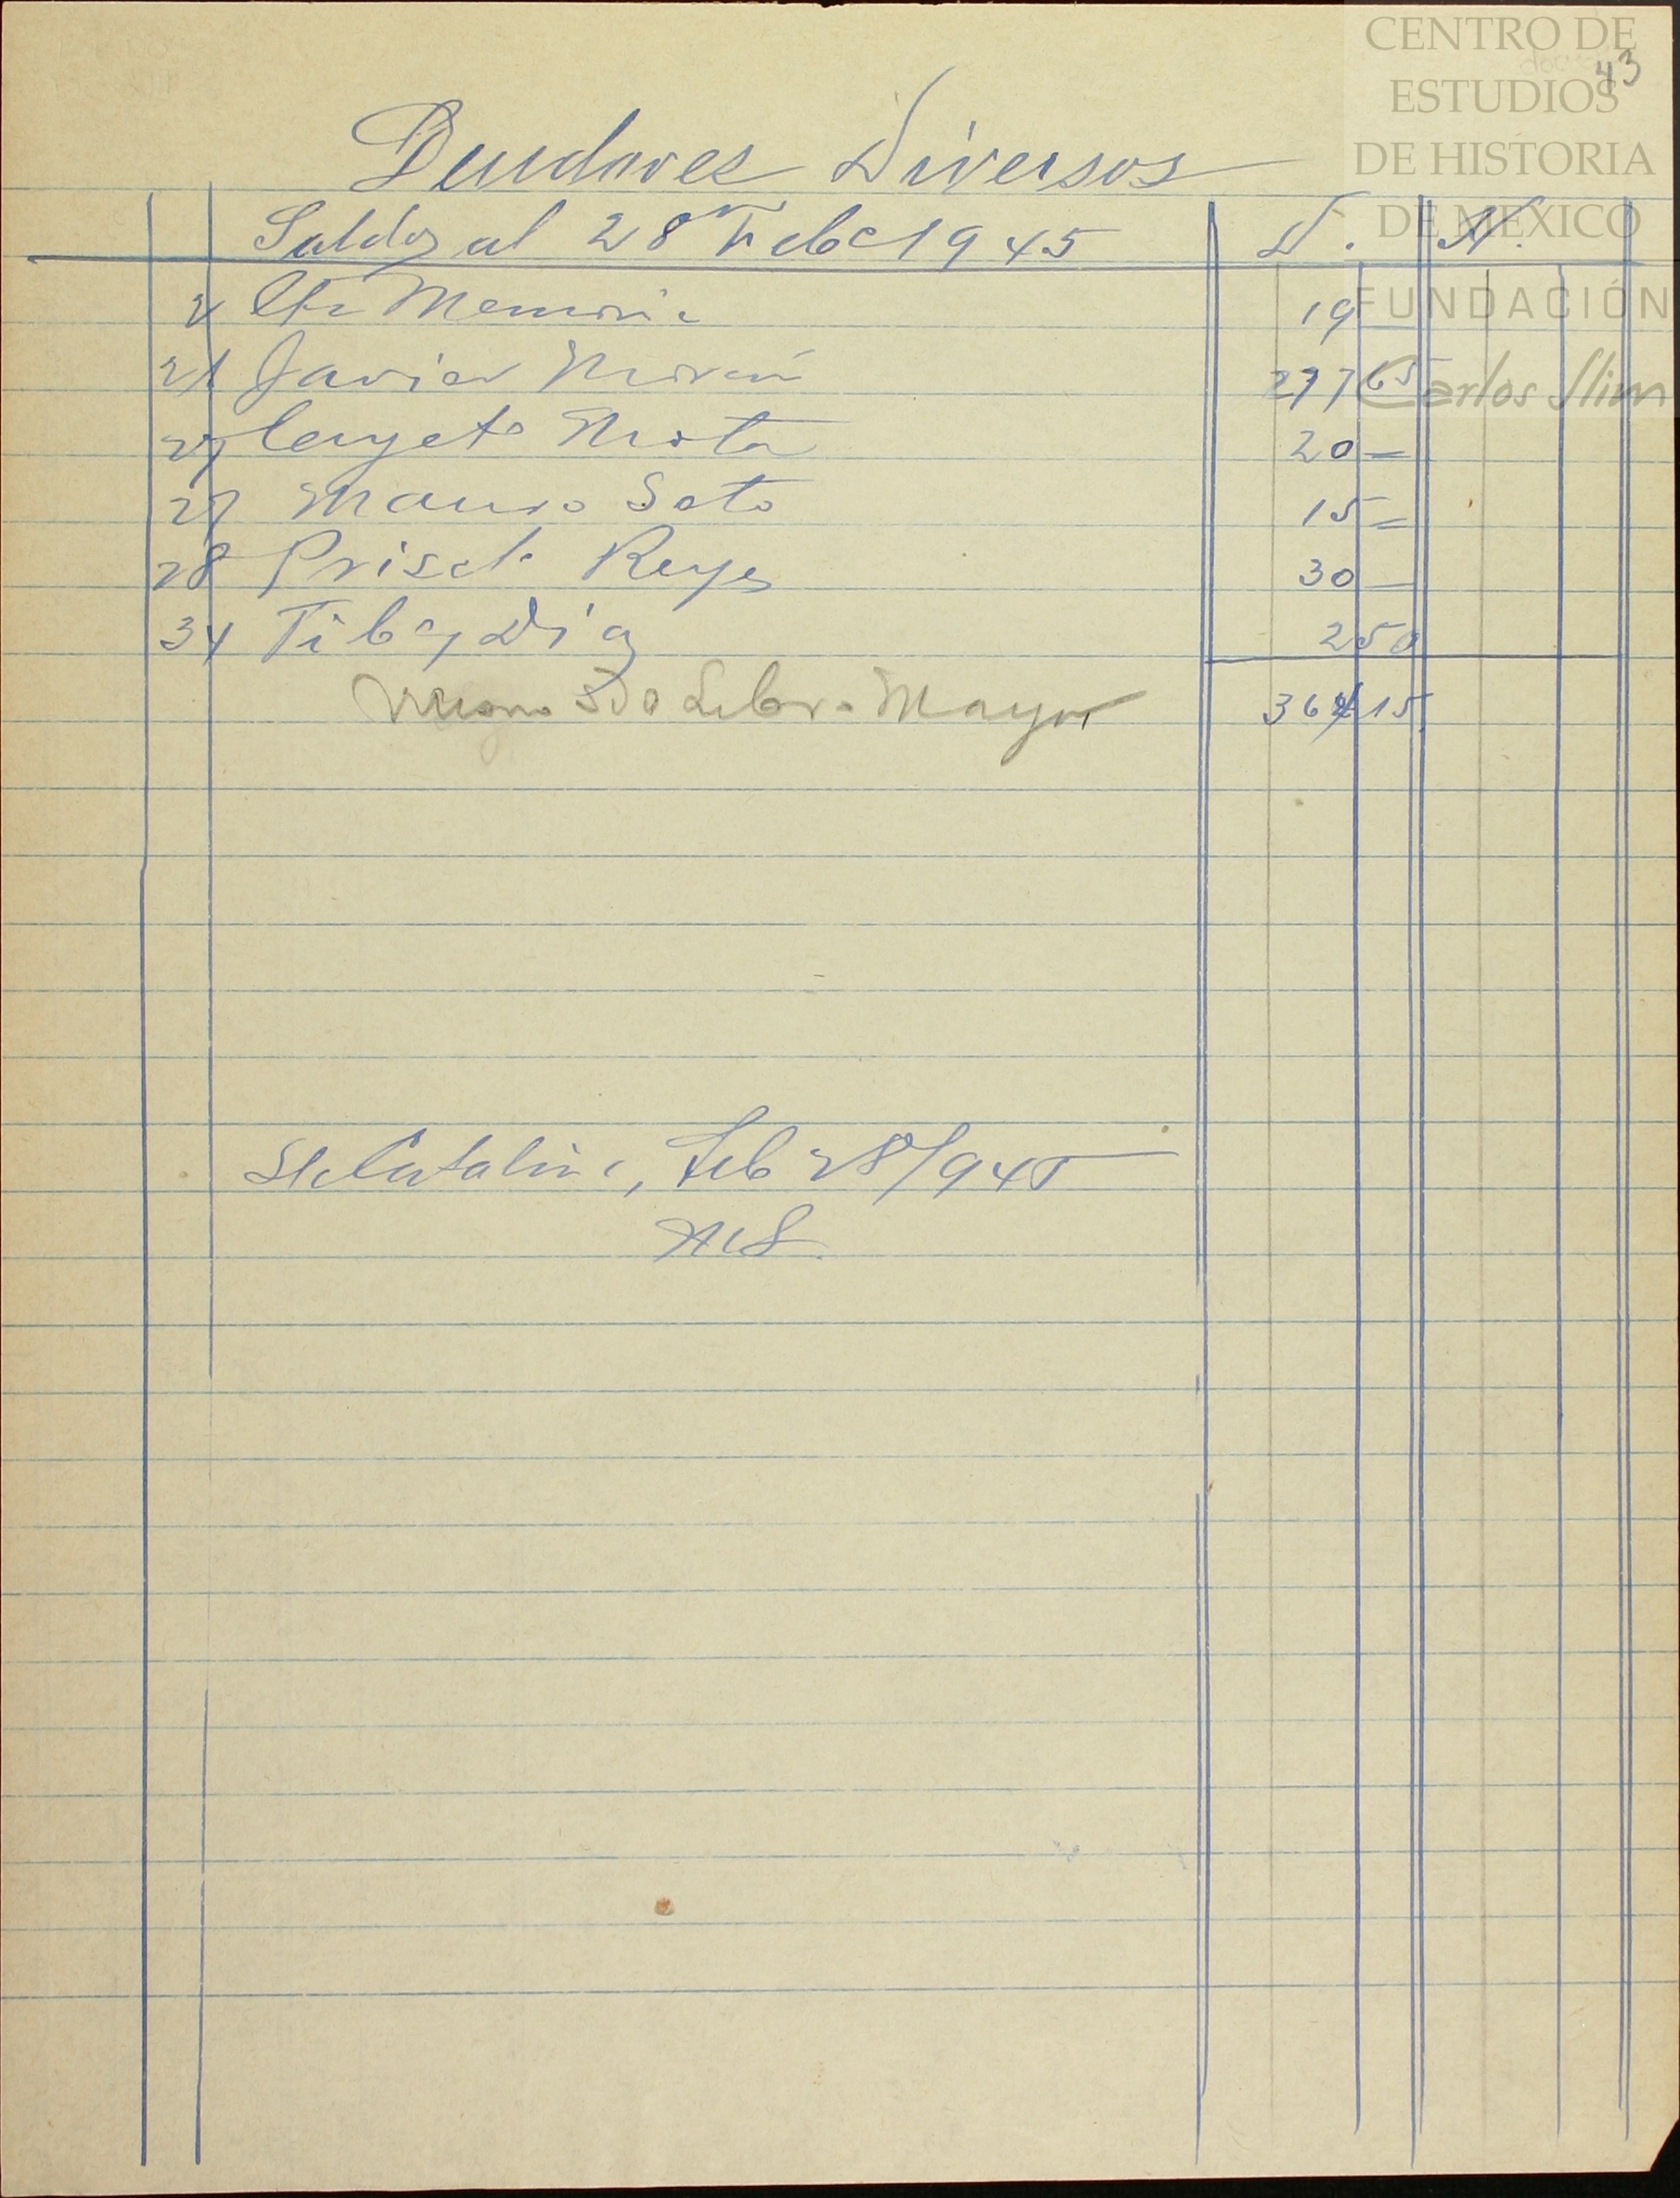 CENTRO DE
ESTUDIOS
DE HISTORIA
DE MEXICO
FUNDACIÓN
Carlos Slim
43
Deudores Diversos
Saldos al 28 Feb 1945 D. H.
Cta Memoria 19
21 Javier Morán 277 65
27 Cayeto Mota 20 =
27 Mauro Soto 15 =
28 Prisct Reyes 30 —
34 Tib Diaz 2 50
Mismo Sdo Libro Mayor 364 15
Sta Catalina, Feb 28/945